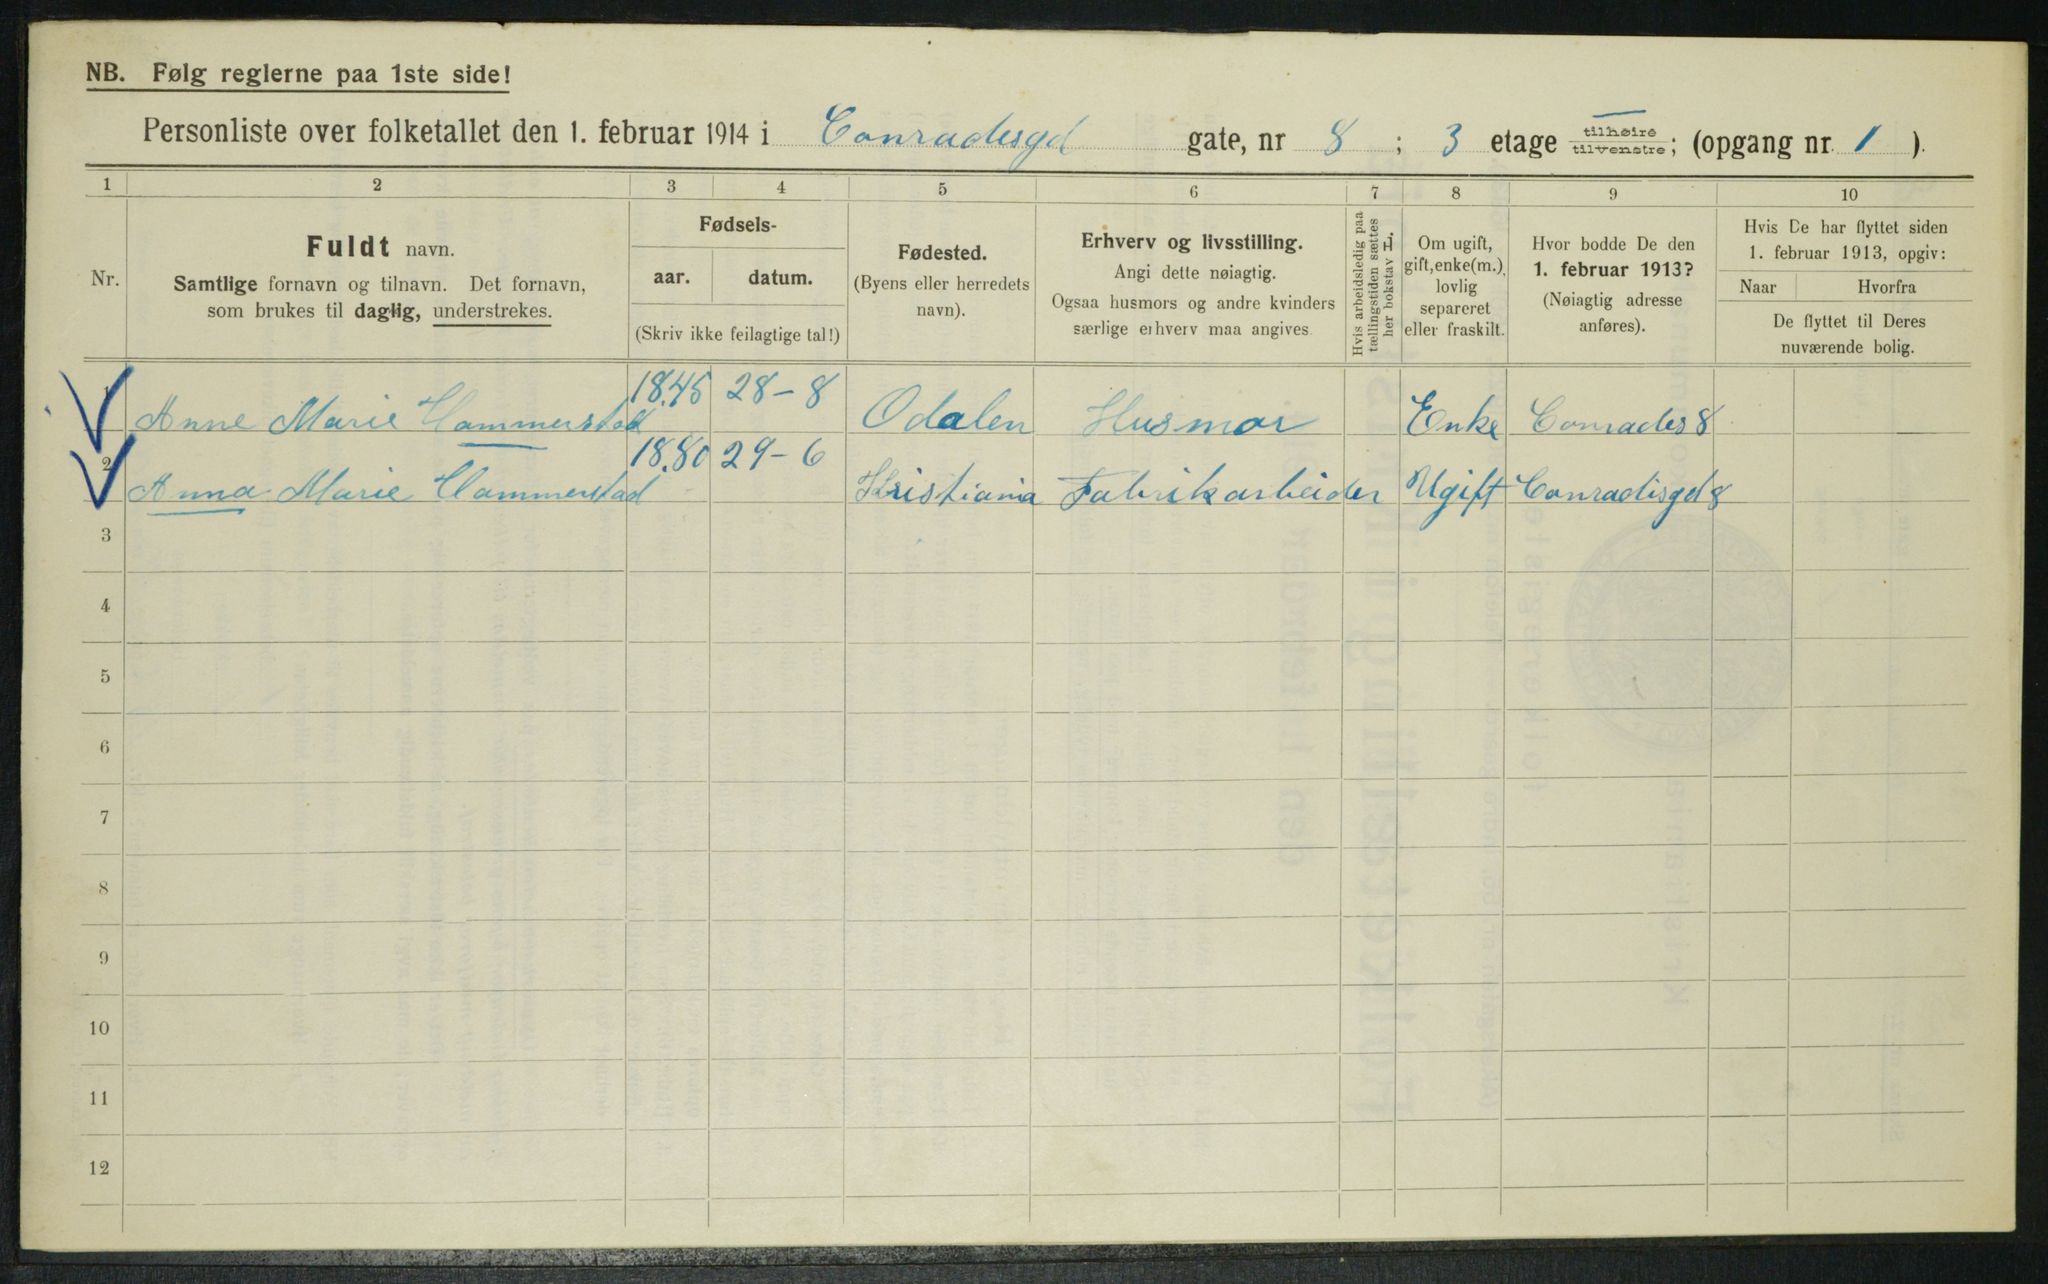 NB. Følg reglerne paa 1ste side!
Personliste over folketallet den 1. februar 1914 i Conradesgd gate, nr 8 ; 3 etage tilhøire tilvenstre; (opgang nr. 1 ).
1 2 3 4 5 6 7 8 9 10
Nr.
Fuldt navn.
Samtlige fornavn og tilnavn. Det fornavn,
som brukes til daglig, understrekes.
Fødsels-
aar. datum.
(Skriv ikke feilagtige tal!)
Fødested.
(Byens eller herredets
navn).
Erhverv og livsstilling.
Angi dette nøiagtig.
Ogsaa husmors og andre kvinders
særlige erhverv maa angives.
Hvis arbeidsledig paa
tællingstiden sættes
her bokstav L.
Om ugift,
gift, enke(m.),
lovlig
separeret
eller fraskilt.
Hvor bodde De den
1. februar 1913?
(Nøiagtig adresse
anføres).
Hvis De har flyttet siden
1. februar 1913, opgiv:
Naar Hvorfra
De flyttet til Deres
nuværende bolig.
1 Anne Marie Hammerstad 1845 28-8 Odalen Husmor Enke Conrades 8
2 Anna Marie Hammerstad 1880 29-6 Kristiania Fabrikarbeider Ugift Conradisgd 8
3
4
5
6
7
8
9
10
11
12